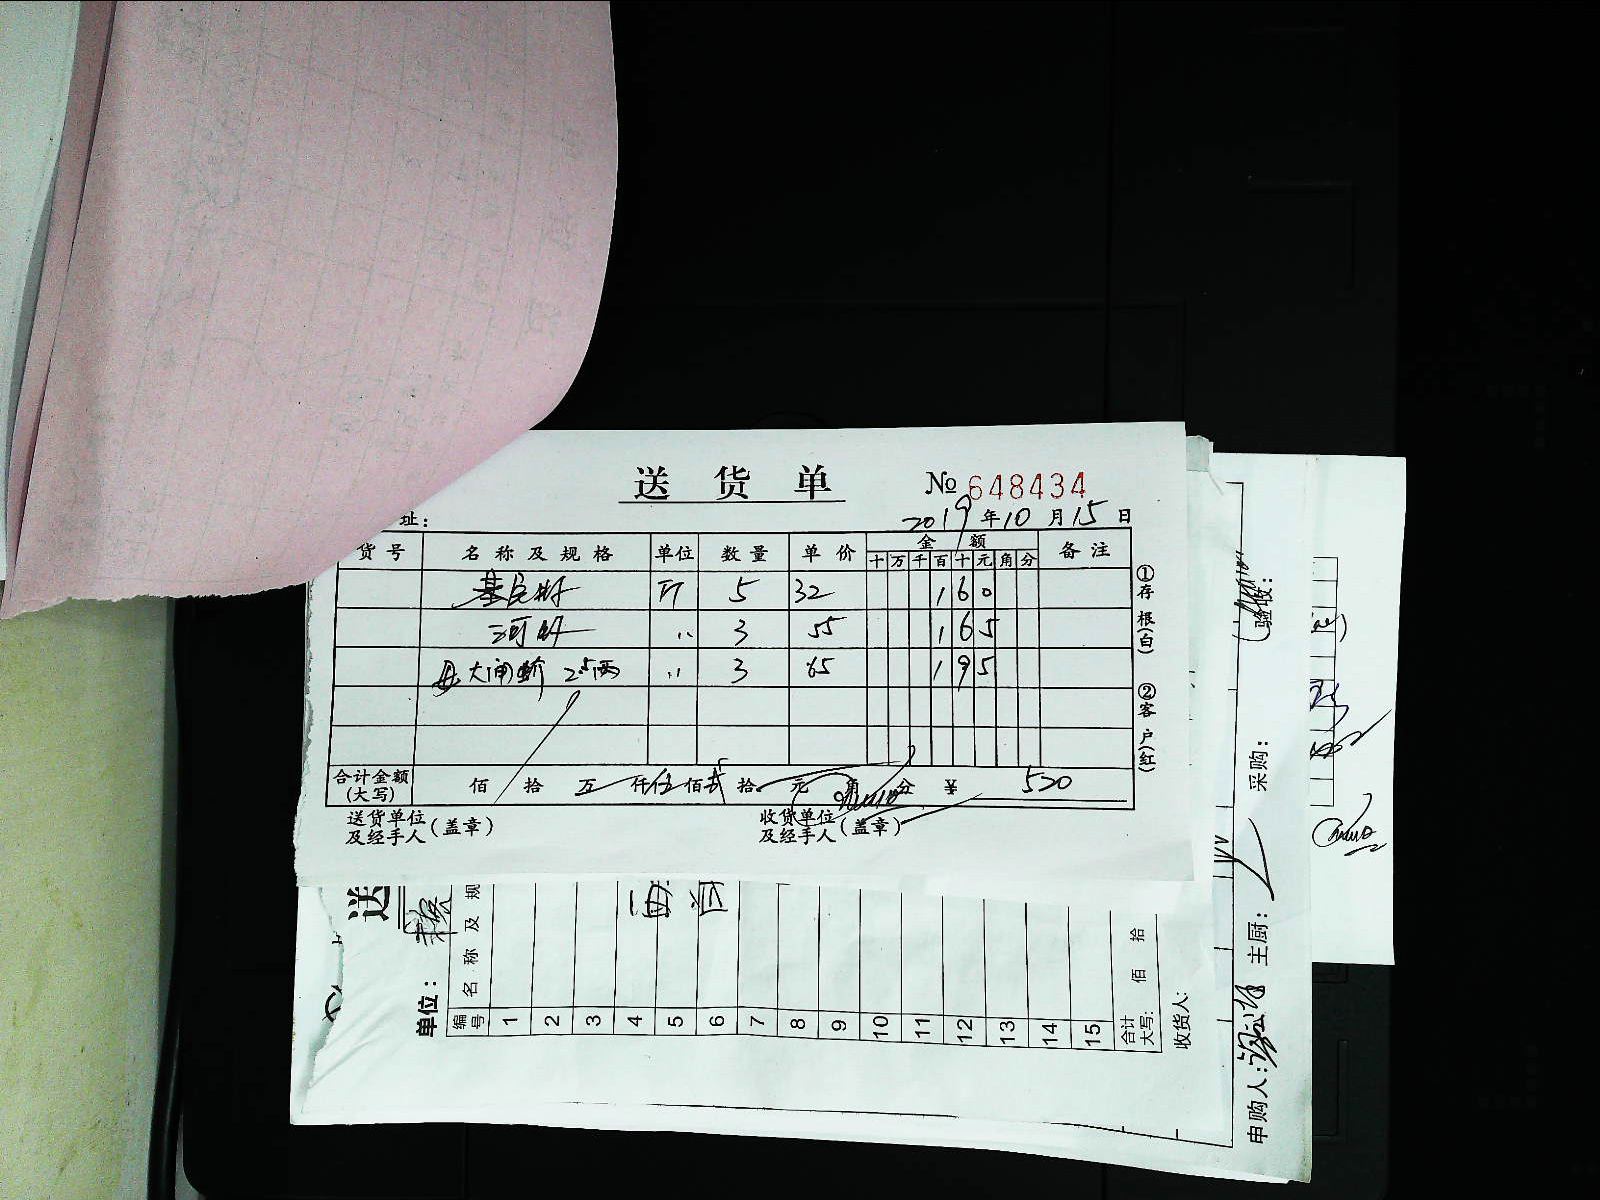 送货单 № 648434
址：
2019年10月15日
货号 名称及规格 单位 数量 单价 金额 备注
十 万 千 百 十 元 角 分
基尾虾 斤 5 32 1 6 0
河虾 〃 3 55 1 6 5
母大闸蟹 2.5两 〃 3 65 1 9 5
合计金额(大写) 佰 拾 万 仟伍佰贰拾 元 角 分 ¥ 520
送货单位及经手人(盖章) 收货单位及经手人(盖章)
①存根(白)
②客户(红)
送
单位：
编号 名称及规
1
2
3
4
5
6
7
8
9
10
11
12
13
14
15
合计大写: 佰 拾
收货人:
申购人: 主厨: 采购: 验收: